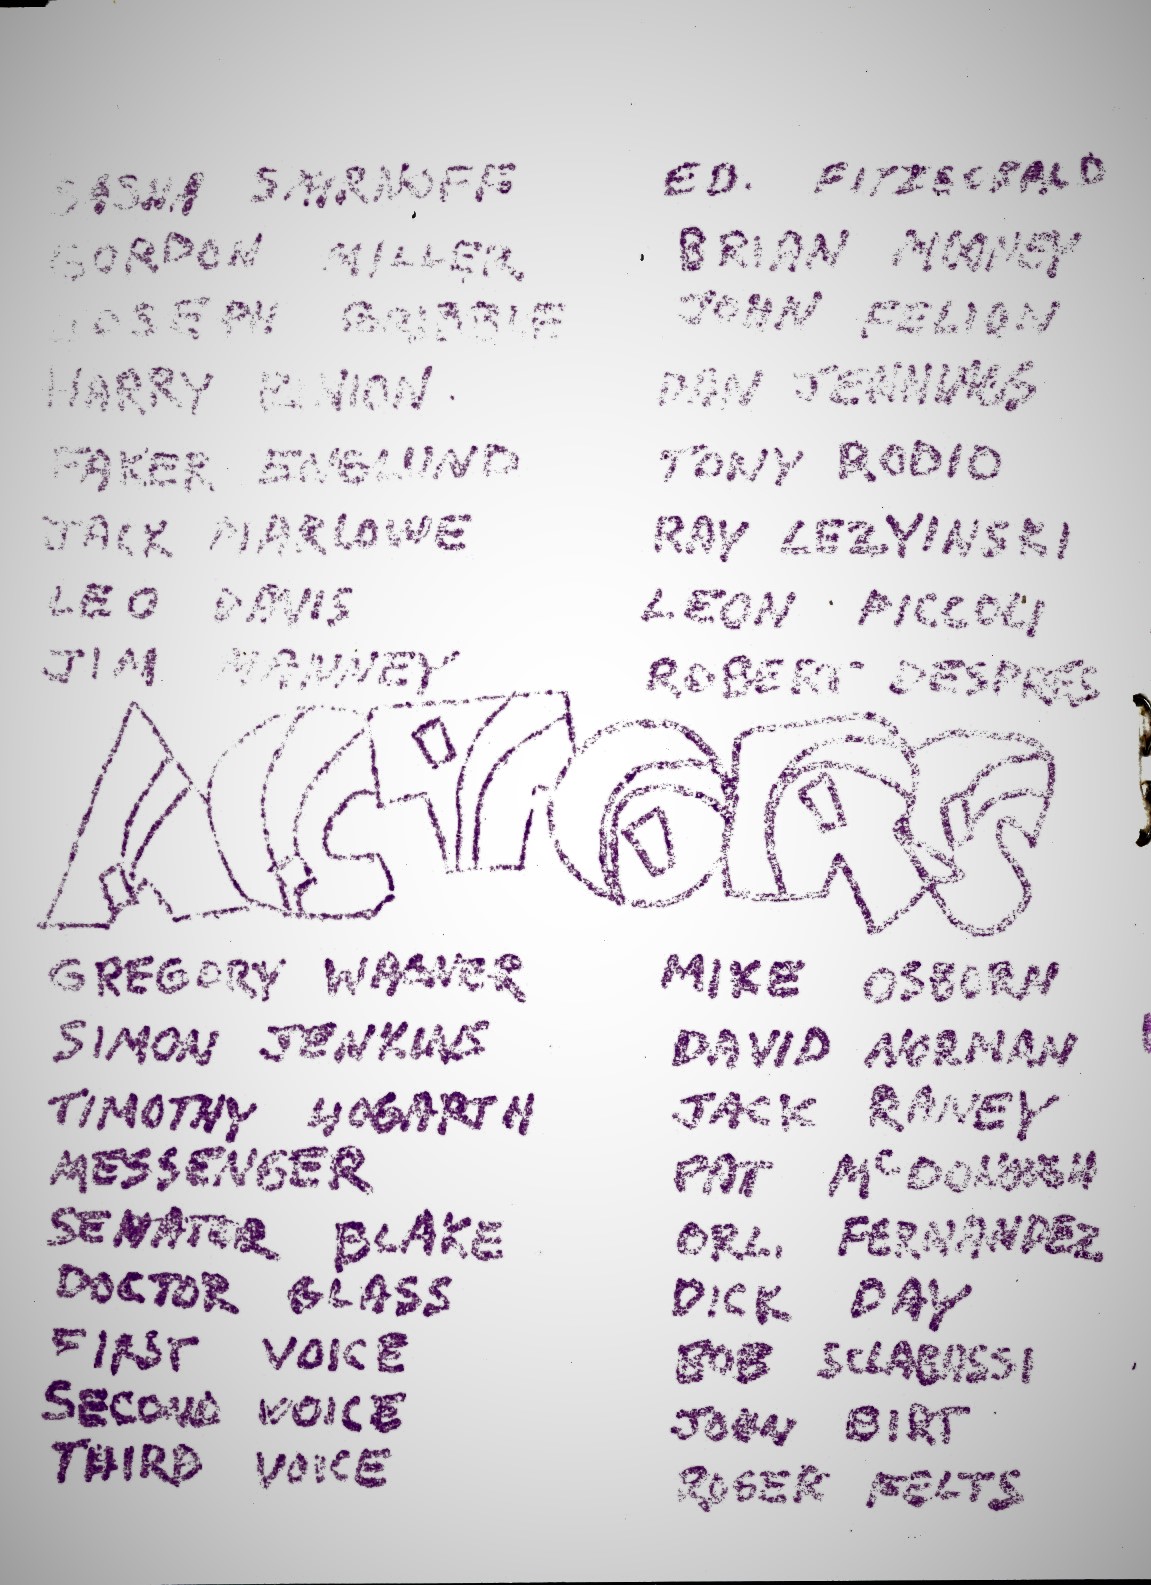 SASHA SMIRNOFF ED. FITZGERALD
GORDON MILLER BRIAN MOONEY
JOSEPH GRIBBLE JOHN FELION
HARRY BINION DAN JENNINGS
FAKER ENGLUND TONY RODIO
JACK MARLOWE RAY LEZYINSKI
LEO DAVIS LEON PICCOLI
JIM MANNEY ROBERT DESPRES
ACTORS
GREGORY WAGNER MIKE OSBORN
SIMON JENKINS DAVID NORMAN
TIMOTHY HOGARTH JACK RANEY
MESSENGER PAT McDONOUGH
SENATOR BLAKE ORL. FERNANDEZ
DOCTOR GLASS DICK DAY
FIRST VOICE BOB SCLABASSI
SECOND VOICE JOHN BIRT
THIRD VOICE ROGER FELTS